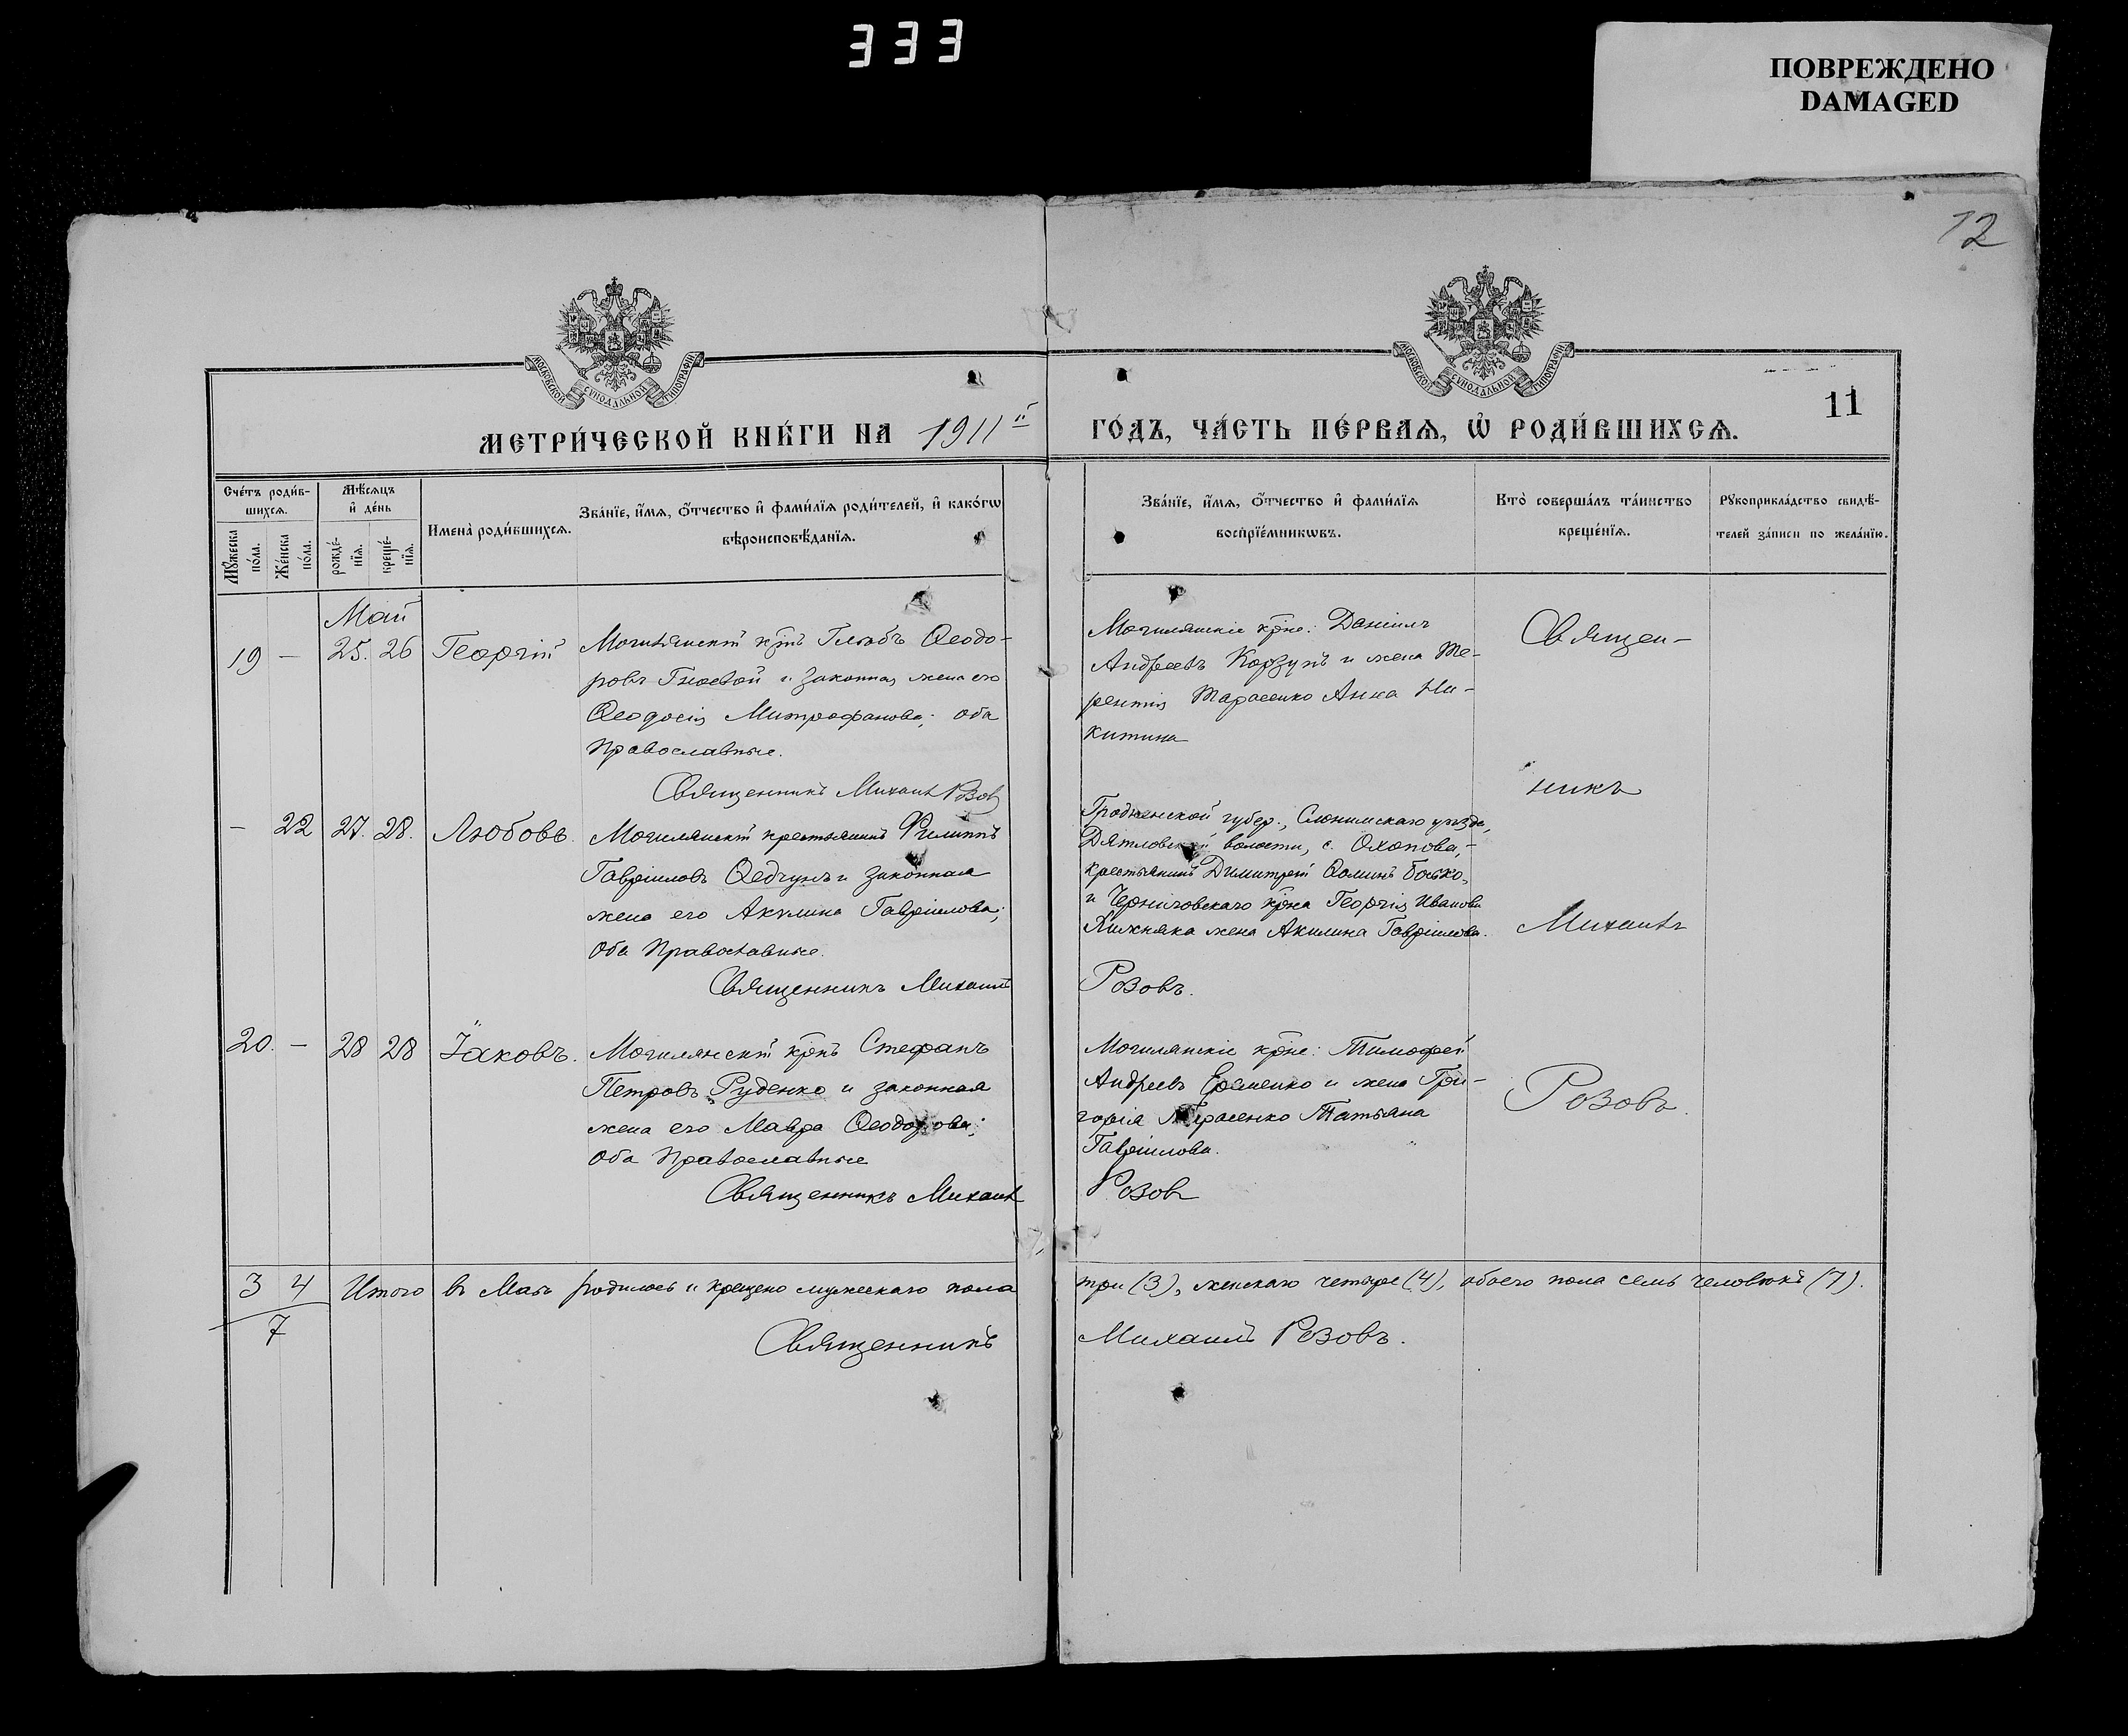 333
ПОВРЕЖДЕНО
DAMAGED
12
МОСКОВСКОЙ СѴНОДАЛЬНОЙ ТИПОГРАФІИ
МОСКОВСКОЙ СѴНОДАЛЬНОЙ ТИПОГРАФІИ
11
МЕТРИ́ЧЕСКОЙ КНИ́ГИ НА 1911й ГО́ДЪ, ЧА́СТЬ ПЕ́РВАѦ, Ѡ҆ РОДИ́ВШИХСѦ.
Сче́тъ роди́в-
шихсѧ.
Мꙋ́жеска по́ла.
Же́нска по́ла.
Мѣ́сѧцъ
и҆ де́нь
рожде́-
нїѧ.
креще́-
нїѧ.
Имена̀ роди́вшихсѧ.
Зва́нїе, и҆́мѧ, ѻ҆́тчество и҆ фами́лїѧ роди́телей, и҆ како́гѡ
вѣроисповѣ́данїѧ.
Зва́нїе, и҆́мѧ, ѻ҆́тчество и҆ фами́лїѧ
воспрїе́мникѡвъ.
Кто̀ соверша́лъ та́инство
креще́нїѧ.
Рꙋкоприкла́дство свидѣ́-
телей за́писи по жела́нїю.
Май
19 — 25. 26 Георгій
Могилянскій крнъ Глѣбъ Ѳеодо-
ровъ Гноевой и законная жена его
Ѳеодосія Митрофанова; оба
православные.
Священникъ Михаилъ Розовъ
Могилянскіе крне: Даніилъ
Андреевъ Корзунъ и жена Те-
рентія Тарасенко Анна Ни-
китина
Священ-
никъ
Михаилъ
Розовъ.
— 22 27. 28. Любовь.
Могилянскій крестьянинъ Филиппъ
Гавріиловъ Ѳедчунъ и законная
жена его Акулина Гавріилова;
оба православные.
Священникъ Михаилъ Розовъ.
Гродненской губер., Слонимскаго уѣзда,
Дятловской волости, с. Охонова,-
крестьянинъ Димитрій Ѳоминъ Босько,
и Черниговскаго крна Георгія Иванова
жена Акилина Гавріилова.
20. — 28 28 Іаковъ.
Могилянскій крнъ Стефанъ
Петровъ Руденко и законная
жена его Мавра Ѳеодорова;
оба православные
Священникъ Михаилъ Розовъ
Могилянскіе крне: Тимофей
Андреевъ Еременко и жена Гри-
горія Тарасенко Татьяна
Гавріилова.
3 4 Итого въ Маѣ родилось и крещено мужескаго пола три (3), женскаго четыре (4), обоего пола семь человѣкъ (7).
7
Священникъ Михаилъ Розовъ.